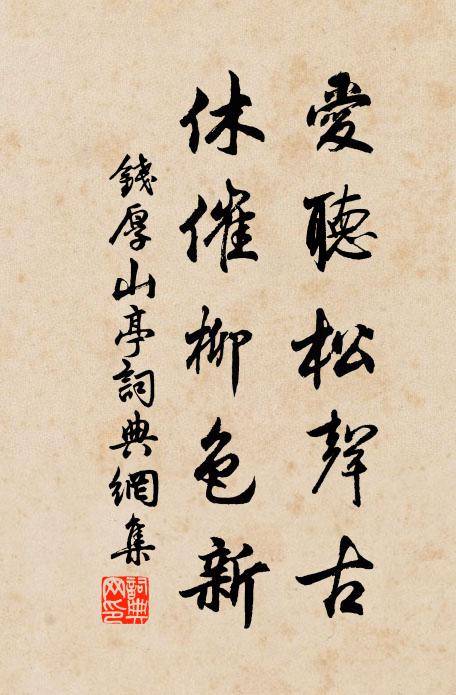 愛聽松聲古
休催柳色新
錢厚山亭詞典網集
詞典網印